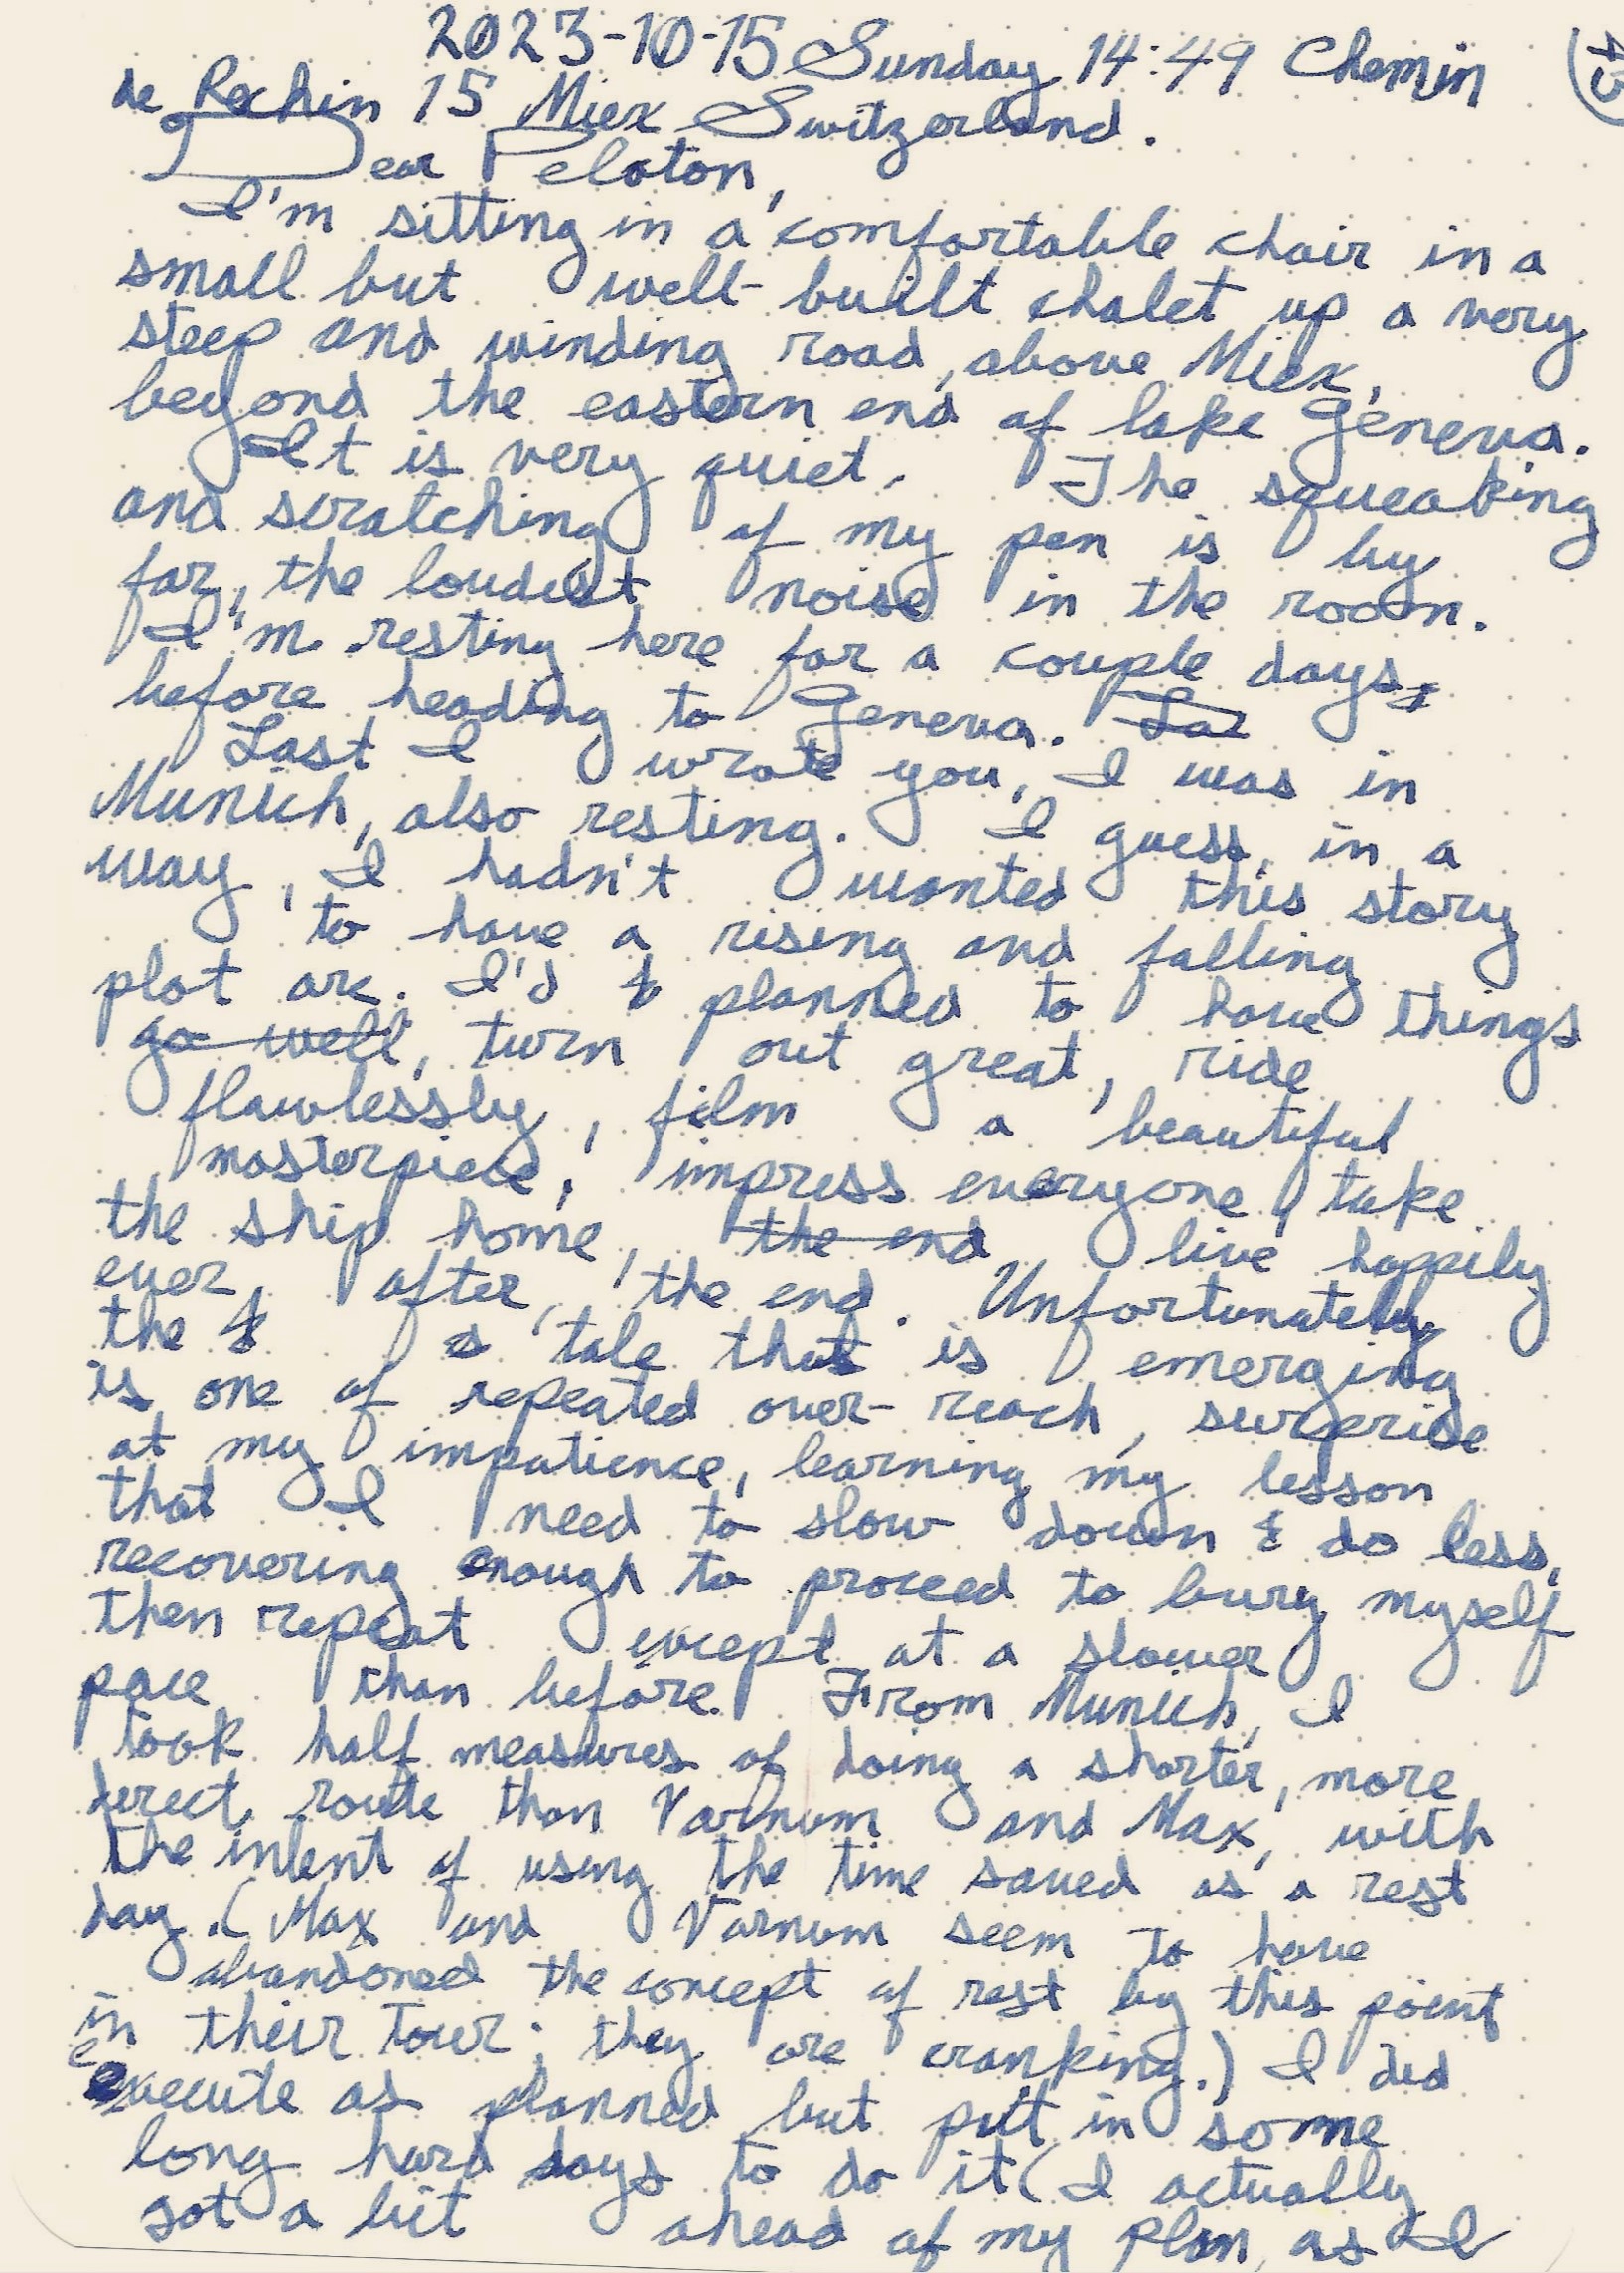 2023-10-15 Sunday 14:49 Chemin
de Rechin 15 Miex Switzerland.
Dear Peloton,
I'm sitting in a comfortable chair in a
small but well-built chalet up a very
steep and winding road, above Miex,
beyond the eastern end of lake Geneva.
It is very quiet. The squeaking
and scratching of my pen is by
far, the loudest noise in the room.
I'm resting here for a couple days,
before heading to Geneva.
Last I wrote you, I was in
Munich, also resting. I guess, in a
way, I hadn't wanted this story
to have a rising and falling
plot arc. I'd planned to have things
go well, turn out great, ride
flawlessly, film a beautiful
masterpiece, impress everyone, take
the ship home, the end live happily
ever after, the end. Unfortunately
the tale that is emerging
is one of repeated over-reach, surprise
at my impatience, learning my lesson
that I need to slow down & do less,
recovering enough to proceed to bury myself
then repeat except at a slower
pace than before. From Munich, I
took half measures of doing a shorter, more
derect route than Varnum and Max, with
the intent of using the time saved as a rest
day. (Max and Varnum seem to have
abandoned the concept of rest by this point
in their tour; they are cranking.) I did
execute as planned but put in some
long hard days to do it (I actually
got a bit ahead of my plan, as I